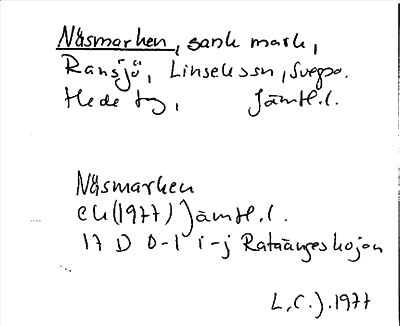 Näsmarken, sank mark,
Ransjö, Linsells sn, Svegs
Hede tg, Jämtl. l.
Näsmarken
ek (1977) Jämtl. l.
17 D 0-1 i-j Rataängeskojan
L. C. J. 1977